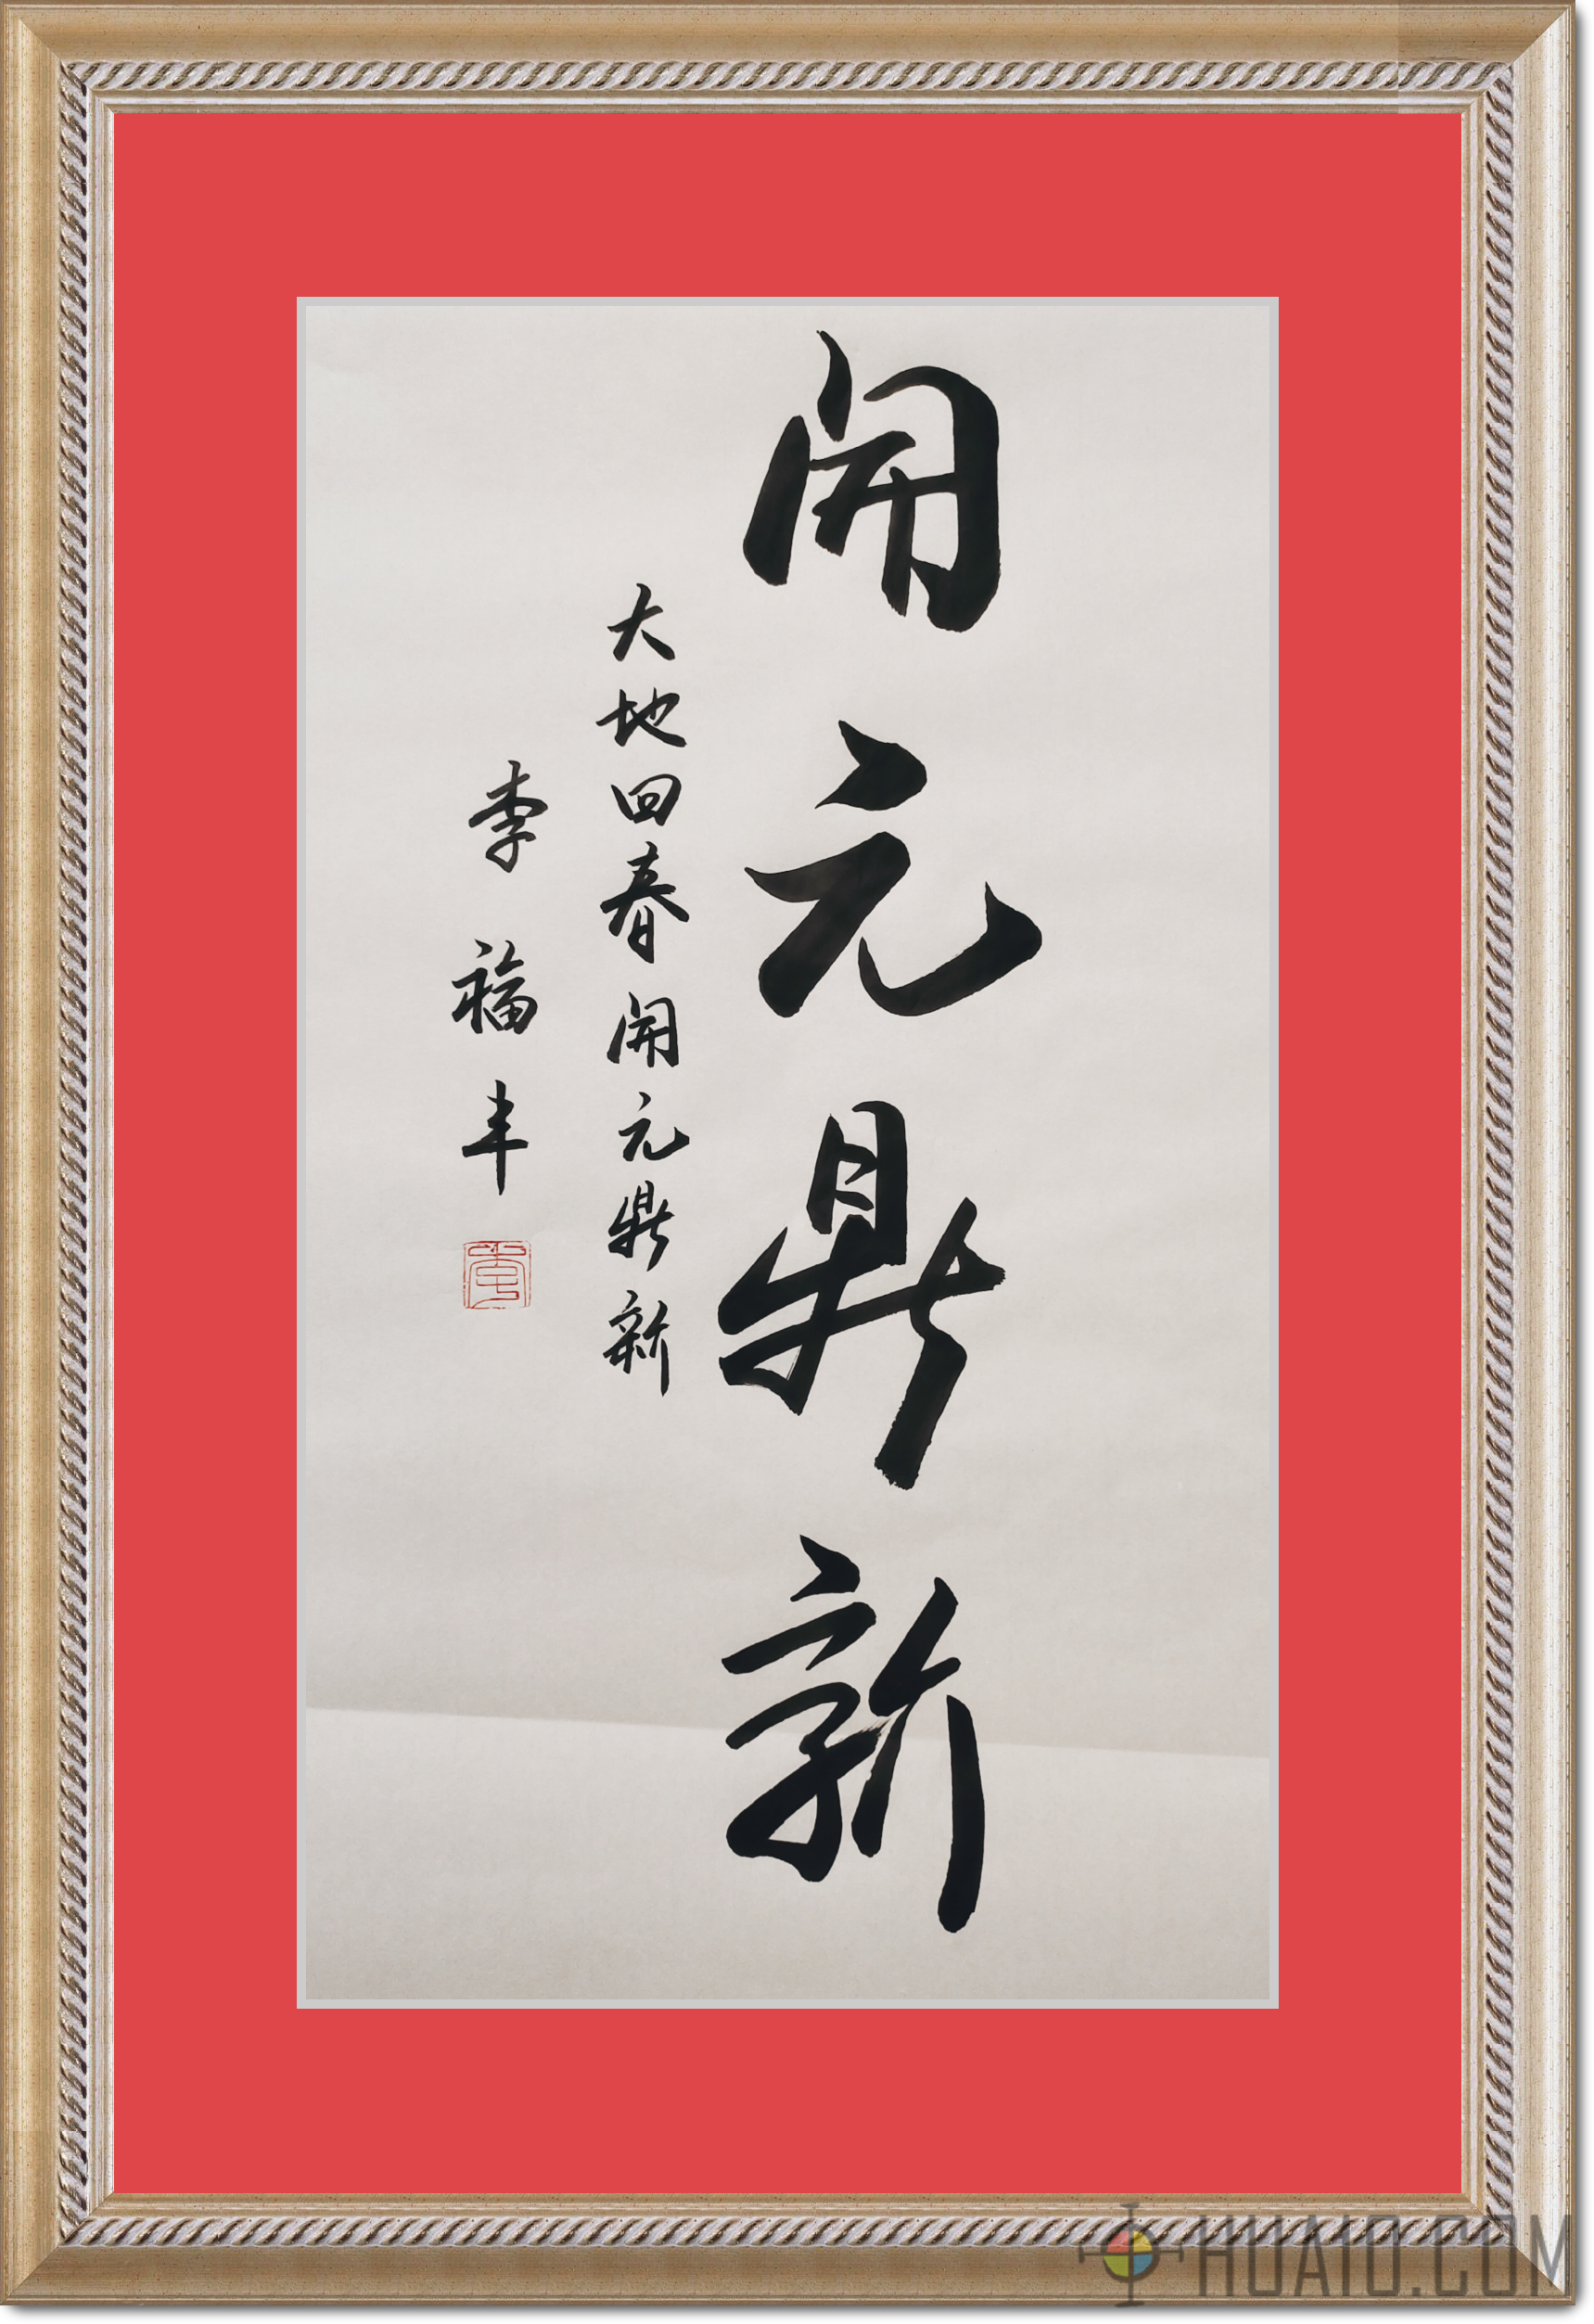 開元鼎新
大地回春開元鼎新
李福丰
HUA10.COM